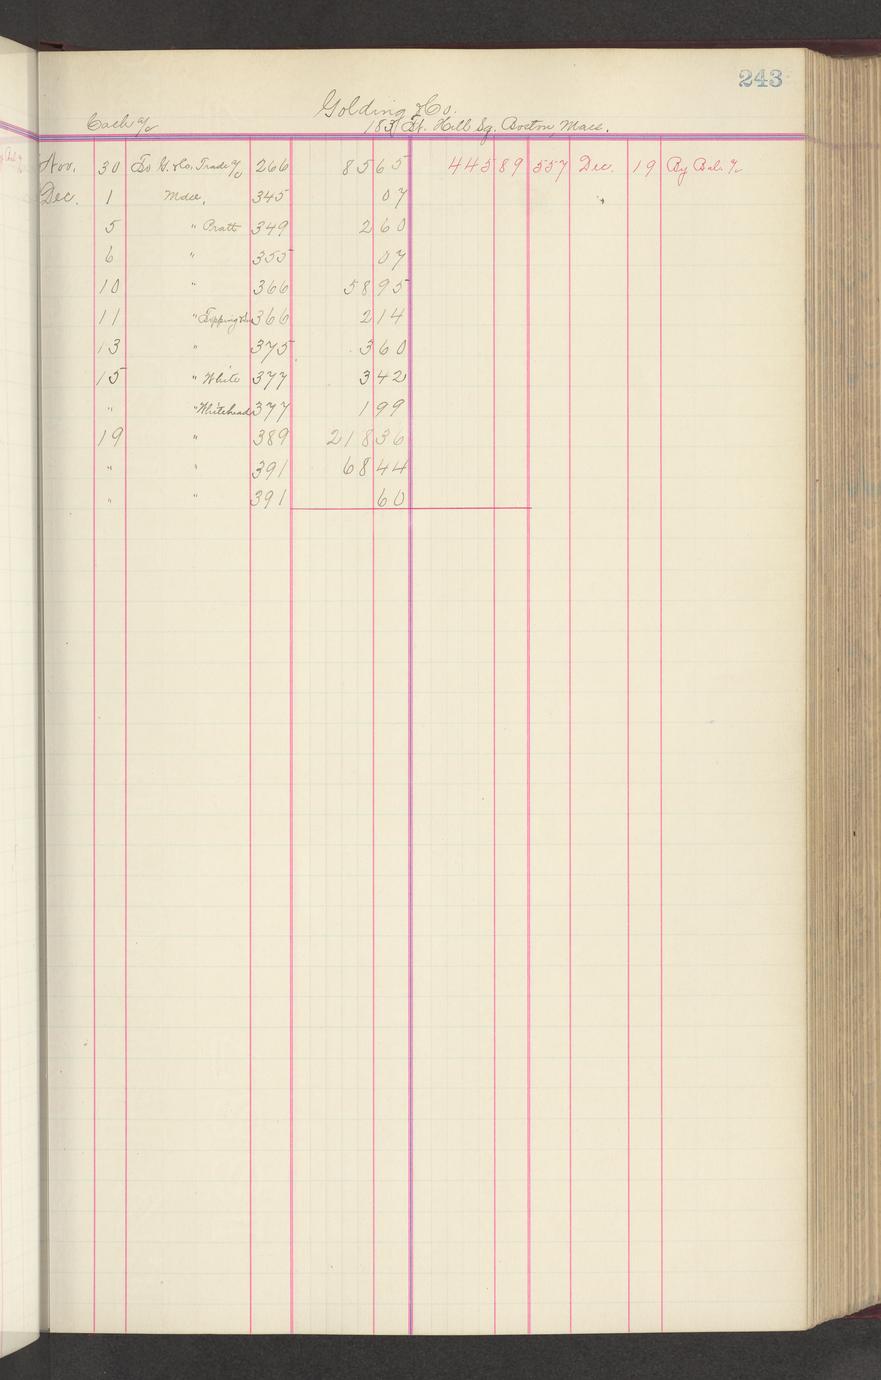 243
Golding & Co.
Cash a/c 183 Ft. Hill Sq. Boston Mass.
Nov. 30 To G. & Co. Trade a/c 266 85 65 445 89 557 Dec. 19 By Bal. a/c
Dec. 1 Mdse. 345 07
5 " Pratt 349 2 60
6 " 355 07
10 " 366 58 95
11 " 366 2 14
13 " 375 3 60
15 " White 377 3 42
" " Whitehead 377 1 99
19 " 389 218 36
" " 391 68 44
" " 391 60